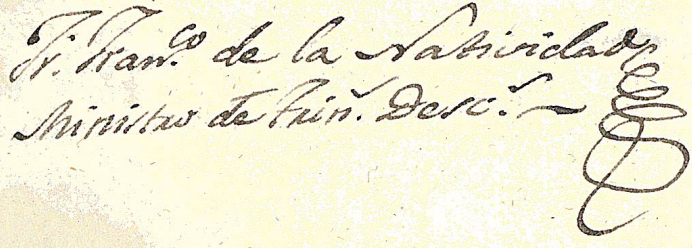 Fr. Fran.co de la Natividad
Ministro de Trin.s Desc.s